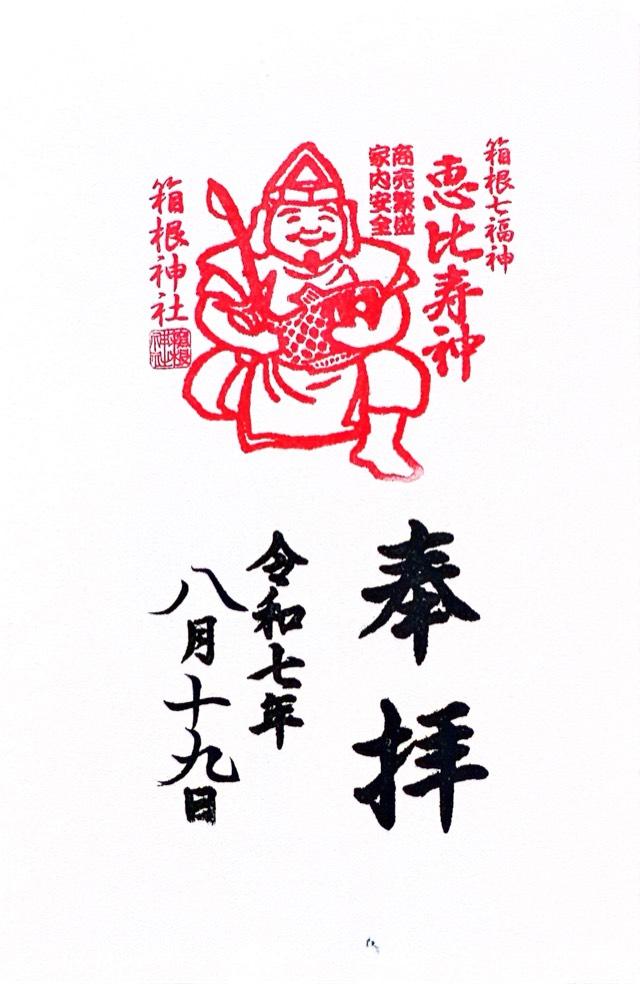 箱根七福神
恵比寿神
商売繁盛
家内安全
箱根神社
箱根
神社
奉拝
令和七年
八月十九日